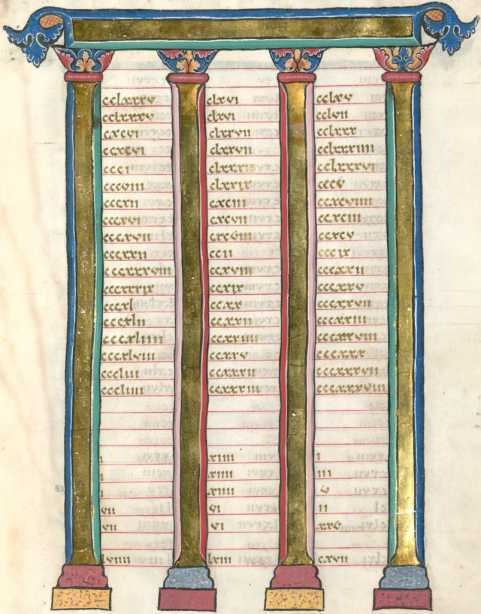 cclxxxv clxvi cclxv
cclxxxv clxvi cclvii
ccxcvi clxxvii cclxxx
ccxcvi clxxvii cclxxxiiii
ccci clxxxii cclxxxvi
cccviii clxxxix cccv
cccxii cxciii ccxcviiii
cccxvi cxcvii ccxciii
cccxvii cxcviii ccxcv
cccxxii ccii cccix
cccxxxviii ccxviii cccxxii
cccxxxix ccxix cccxxv
cccxl ccxx cccxxvii
cccxlii ccxxii cccxxiii
cccxliiii ccxxiiii cccxxviii
cccxlviii ccxxv cccxxx
cccliii ccxxvii cccxxvii
cccliiii ccxxxiii cccxxxviii
i xiiii i
i xiiii iii
i xiiii v
vii vi ii
vii vi xxv
lviiii lxiii cxvii